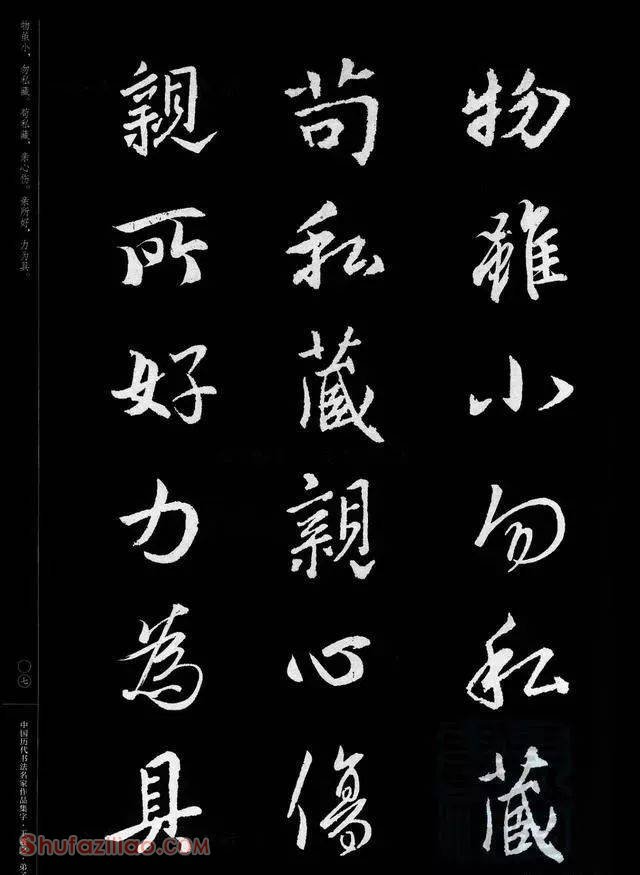 物雖小勿私藏
苟私藏親心傷
親所好力為具
物虽小，勿私藏。苟私藏，亲心伤。亲所好，力为具。
〇七
中国历代书法名家作品集字·
Shufaziliao.com